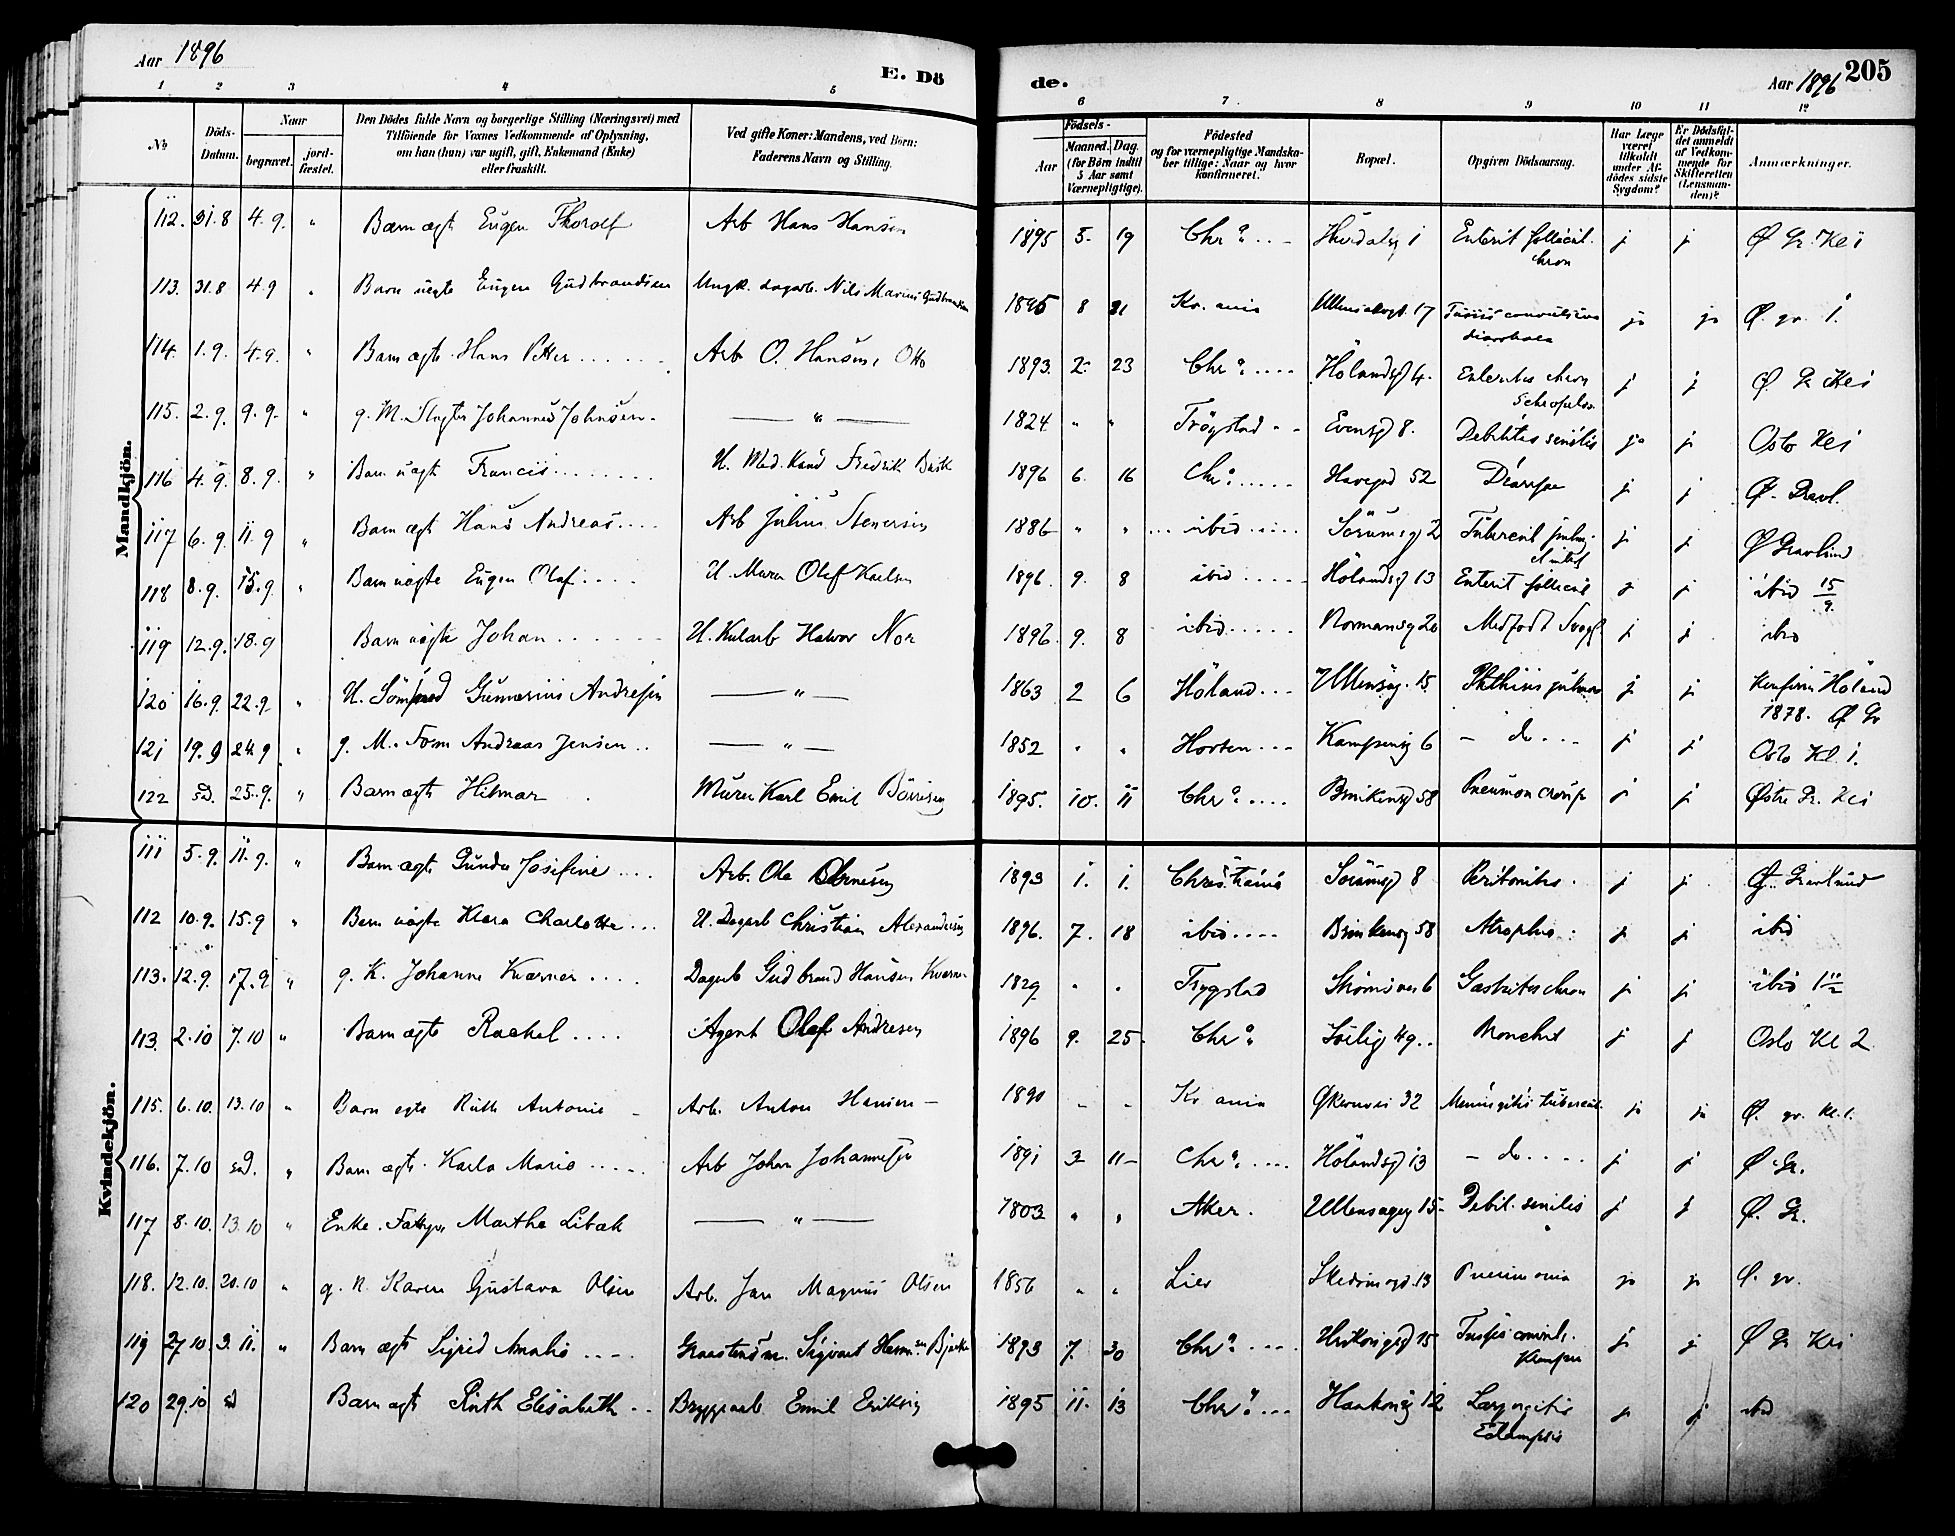 Aar 1896
E. Dö
de.
Aar 1896
205
1 2 3 4 5 6 7. 8 9 10 11 12
No
Döds-Datum.
Naar
begravet.
jord-fæstet.
Den Dödes fulde Navn og borgerlige Stilling (Næringsvei) med
Tilföiende for Voxnes Vedkommende af Oplysning,
om han (hun) var ugift, gift, Enkemand (Enke)
eller fraskilt.
Ved gifte Koner: Mandens, ved Börn:
Faderens Navn og Stilling.
Födsels-
Aar
Maaned. Dag.
(for Börn indtil
5 Aar samt
Værnepligtige).
Födested
og for værnepligtige Mandska-
ber tillige: Naar og hvor
konfirmeret.
Bopæl.
Opgiven Dödsaarsag.
Har Læge
været
tilkaldt
under Af-
dödes sidste
Sygdom?
Er Dödsfal-
det anmeldt
af Vedkom-
mende for
Skifteretten
(Lensman-
den)?
Anmærkninger.
Mandkjön.
112. 31.8 4.9. " Barn ægte Eugen Thorolf Arb Hans Hansen 1895 5. 19 Chr a. Enterit follicul. chron j j Ø Gr. Kl 1
113. 31.8 4.9 " Barn uegte Eugen Gudbrandsen Ungk. dagarb. Nils Marius Gudbrandsen 1895 8 21 Kr. ania 17 Tussis convulsiva diarrhoea ja ja Ø. gr. 1.
114. 1.9. 4.9. " Barn ægte Hans Petter Arb O. Hansen, Otto 1893. 2. 23 Chr a. Hölandsg 4. Enteritis chron Schrophulos. j j Ø Gr Kl 1
115. 2.9. 9.9. " g. M. Johannes Johnsen — " — 1824 " " Trögstad Evensg 8. Debilitas senilis ja j Oslo Kl 1
116 4.9. 8.9. " Barn uægte Francis U. Med. Kand Fredrik 1896 6. 16 Chr a. Haveg 52 j j Ø. Gravl.
117 6.9. 11.9 " Barn ægte Hans Andreas Arb Julius Stenersen 1886 " " ibid Sörumsg 2 Tubercul pulm. j j Ø Gravlund
118 8.9. 15.9. " Barn uægte Eugen Olaf U. Murer Olaf Karlsen 1896. 9. 8 ibid Hölandsg 13 Enterit follicul j j ibid 15/9.
119 12.9. 18.9 Barn uægte Johan U. Halvor Nor 1896. 9. 8 ibid Normansg 20 Medfödt Svagh j j ibid
120 16.9. 22.9 " U. Sömand Gunerius Andresen — " — 1863 2 6 Höland Ullensag. 15 Phthisis pulmon j j Konfirm Höland 1878. Ø Gr
121 19.9 24.9 " g. M. Form Andreas Jensen — " — 1852 " " Horten Kampeng 6 — do j j Oslo Kl. 1.
122 sD. 25.9. " Barn ægte Hilmar Murer Karl Emil 1895. 10. 11 Chr a. Brinkensg 58 Pneumon croup j j Østre Gr. Kl 1
Kvindekjön.
111 5.9. 11.9. " Barn ægte Gunda Josefine Arb. Ole 1893 1. 1. Christiania Sörumsg 8 Peritonitis. j j. Ø. Gravlund
112 10.9. 15.9 " Barn uægte Klara Charlotte U. Dagarb Christian Alexandersen 1896. 7. 18 ibid Brinkensg 58 Atrophia. j j ibid
113. 12.9. 17.9 " g. K. Johanne Kværner Dagarb Gudbrand Hansen Kværner 1829 " " Trygstad Strömsvei 6 Gastritis chron j j ibid
113. 2.10 7.10 " Barn ægte Rachel Agent Olaf Andresen 1896 9. 25. Chr a. 49. Bronchit j j Oslo Kl 2
115. 6.10. 13.10 " Barn egte Ruth Antonie Arb. Anton Hansen 1890 - - Kr ania Økernvei 32 Meningitis tubercul. ja ja Ø. gr. Kl. 1.
116. 7.10 sD. " Barn ægte Karla Marie Arb Johan Johannesen 1891 3 11 Chr a. Hölandsg 13 — do j j Ø Gr.
117 8.10. 13.10 " Enke. Martha Libak — " — 1803 " " Aker. Ullensagerg 15 Debil. senilis j j Ø. Gr.
118. 12.10. 20.10 " g. K. Karen Gustava Olsen Arb. Jan Magnus Olsen 1856 " " Lier 13 Pneumonia ja ja Ø. gr.
119 27.10. 3.11. " Barn ægte Sigrid Amalie Sigvart Bjerke 1893 7. 30 Chr a. 15 Tussis convuls. j j Ø Gr Kl 1
120 29.10 sd Barn ægte Ruth Elisabeth Bryggearb Emil Eriksen 1895 11. 13 Chr a. Haakonsg 12 Laryngitis Eclampsia j j ibid